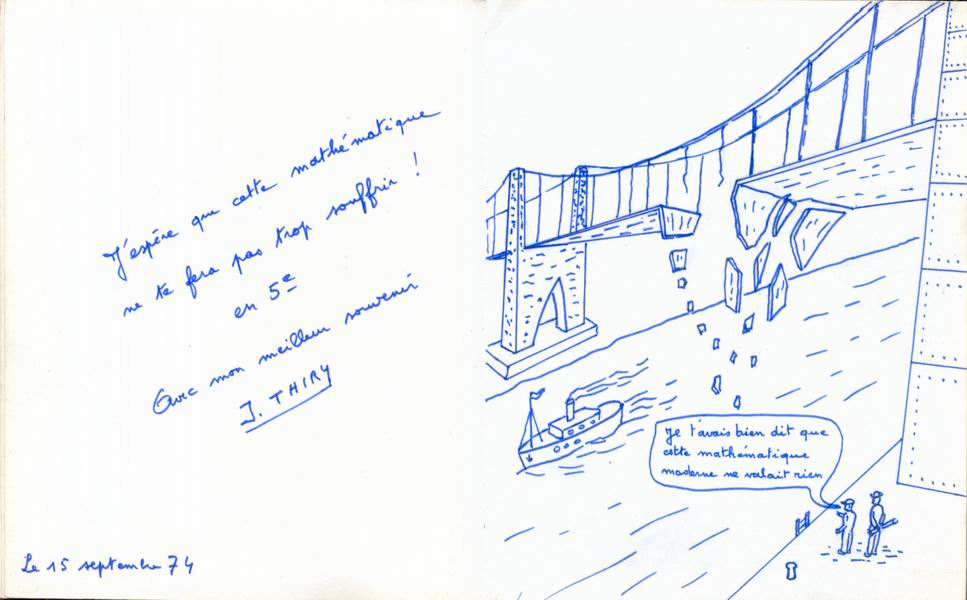 J'espère que cette mathématique
ne te fera pas trop souffrir !
en 5e
Avec mon meilleur souvenir
J. THIRY
Le 15 septembre 74
Je t'avais bien dit que
cette mathématique
moderne ne valait rien